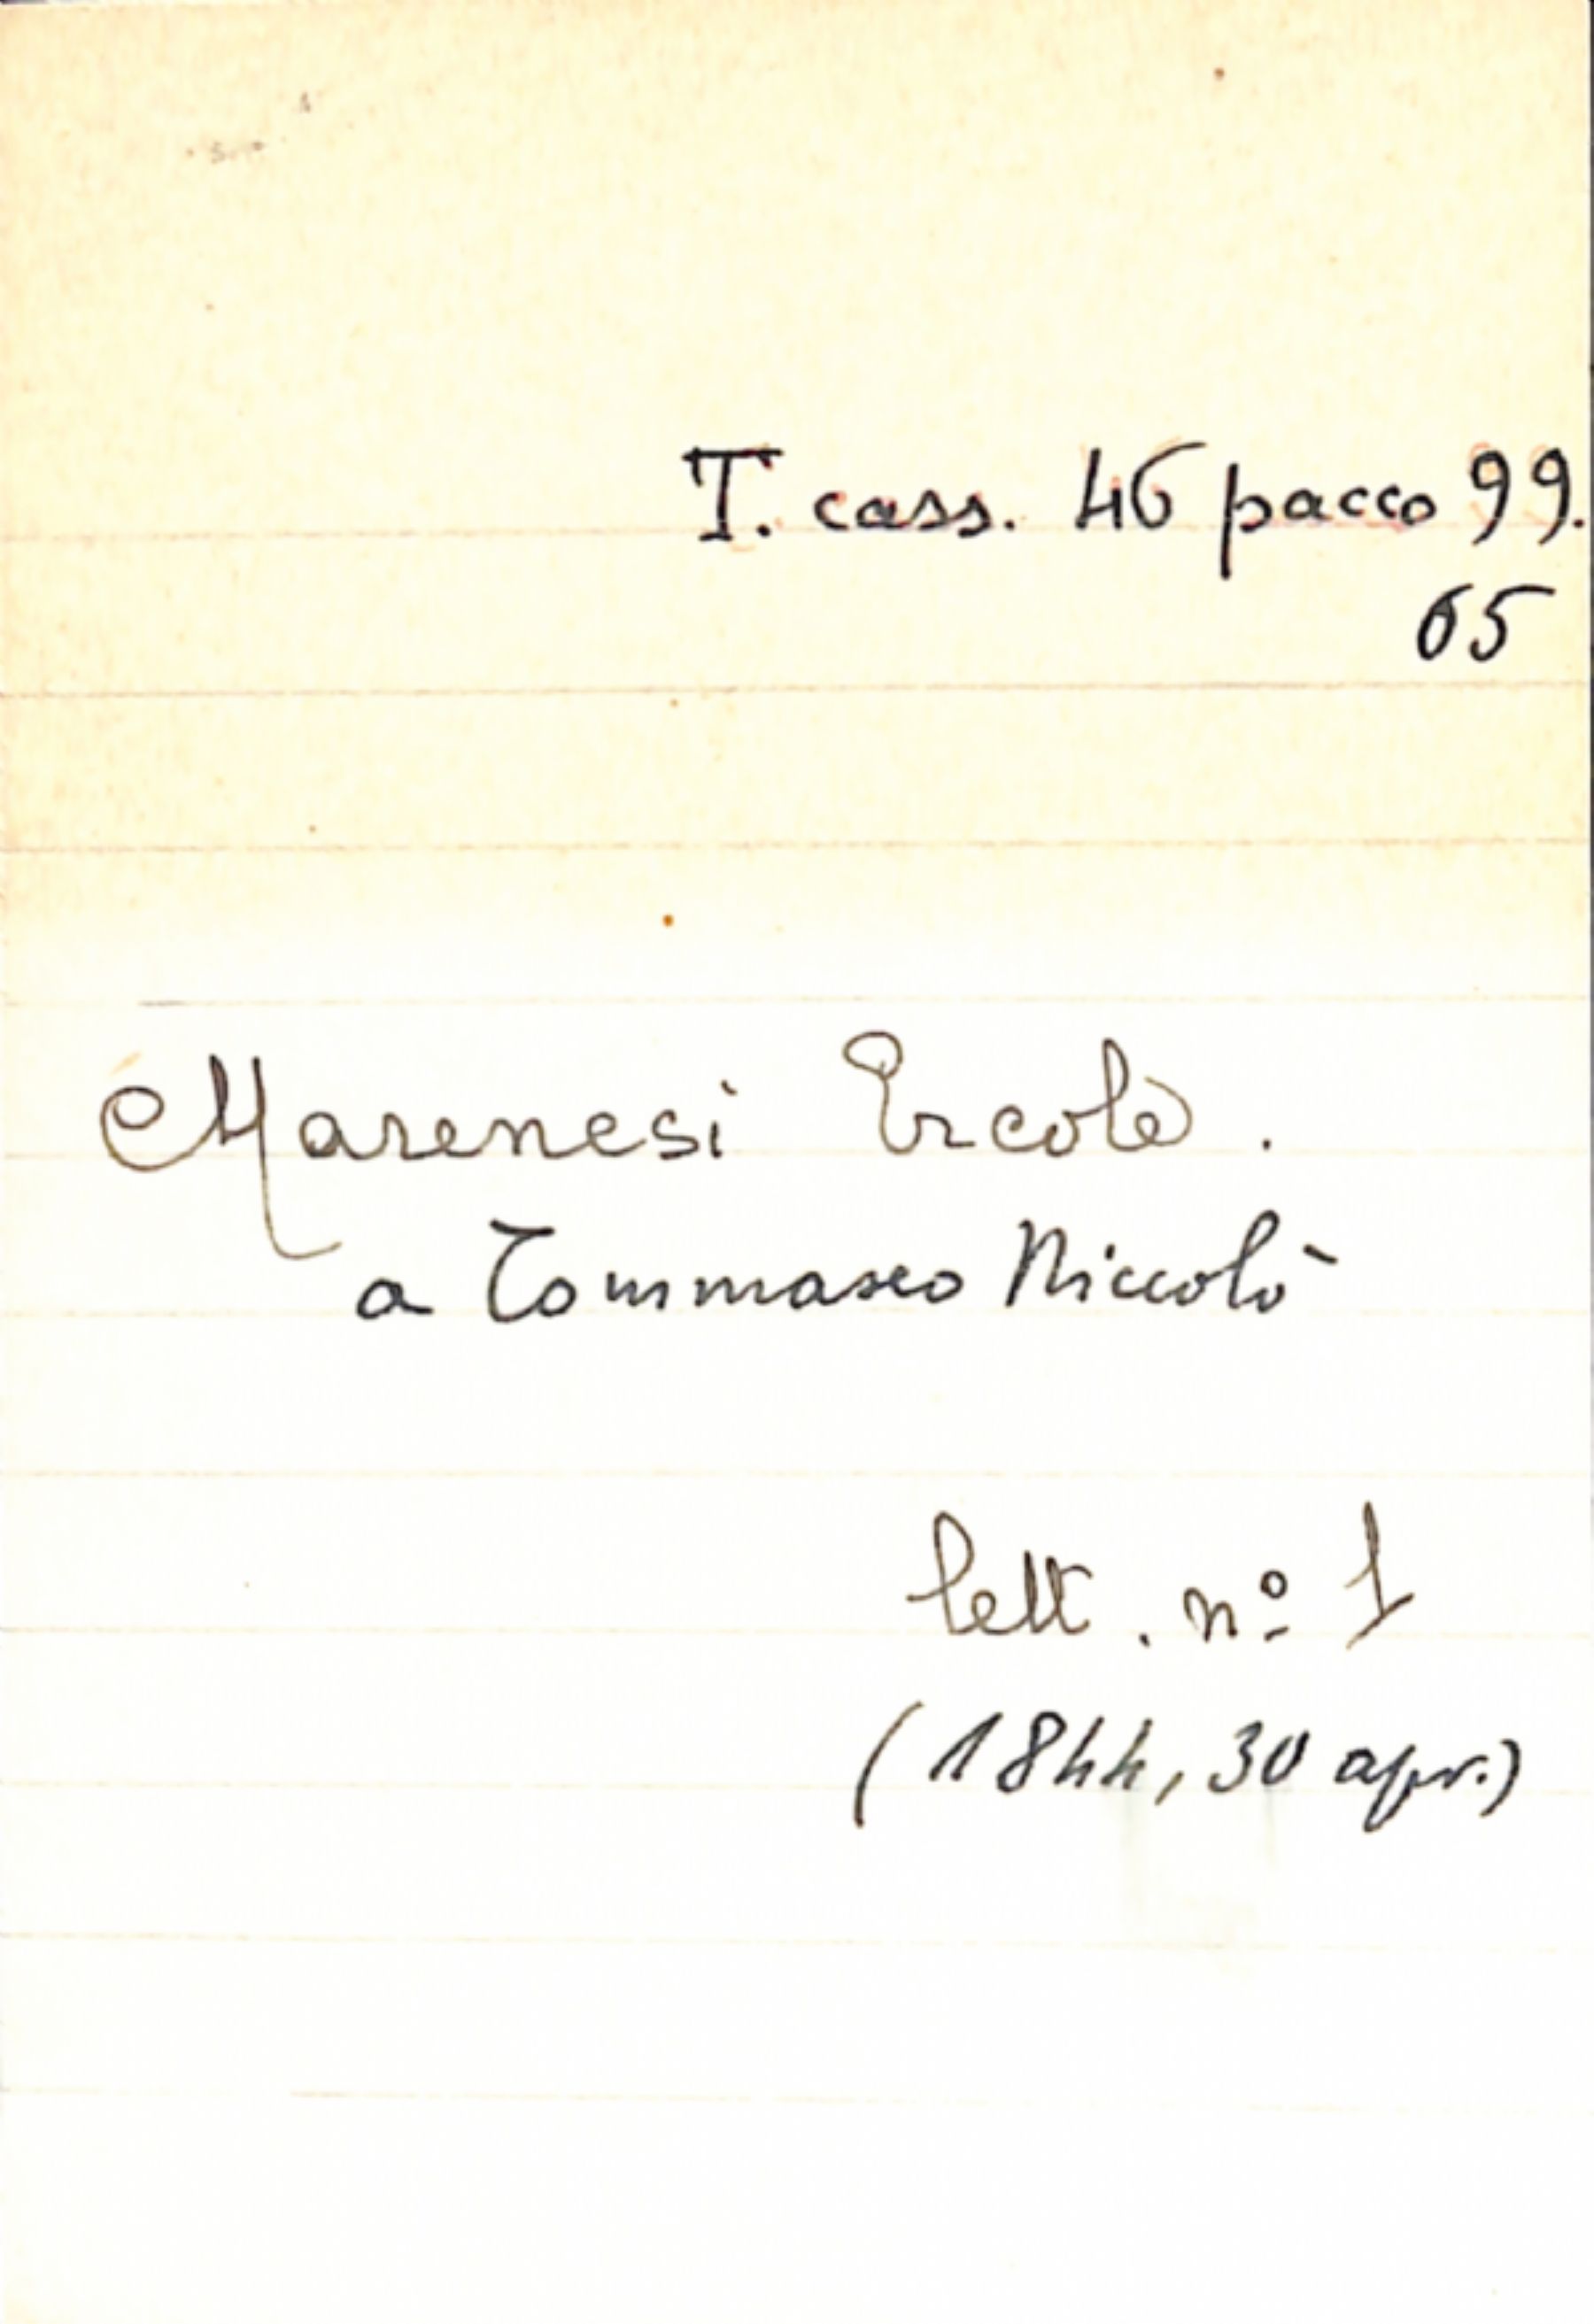 T. cass. 46 pacco 99.
65
Marenesi Ercole.
a Tommaseo Niccolò
lett. nº 1
(1844, 30 apr.)